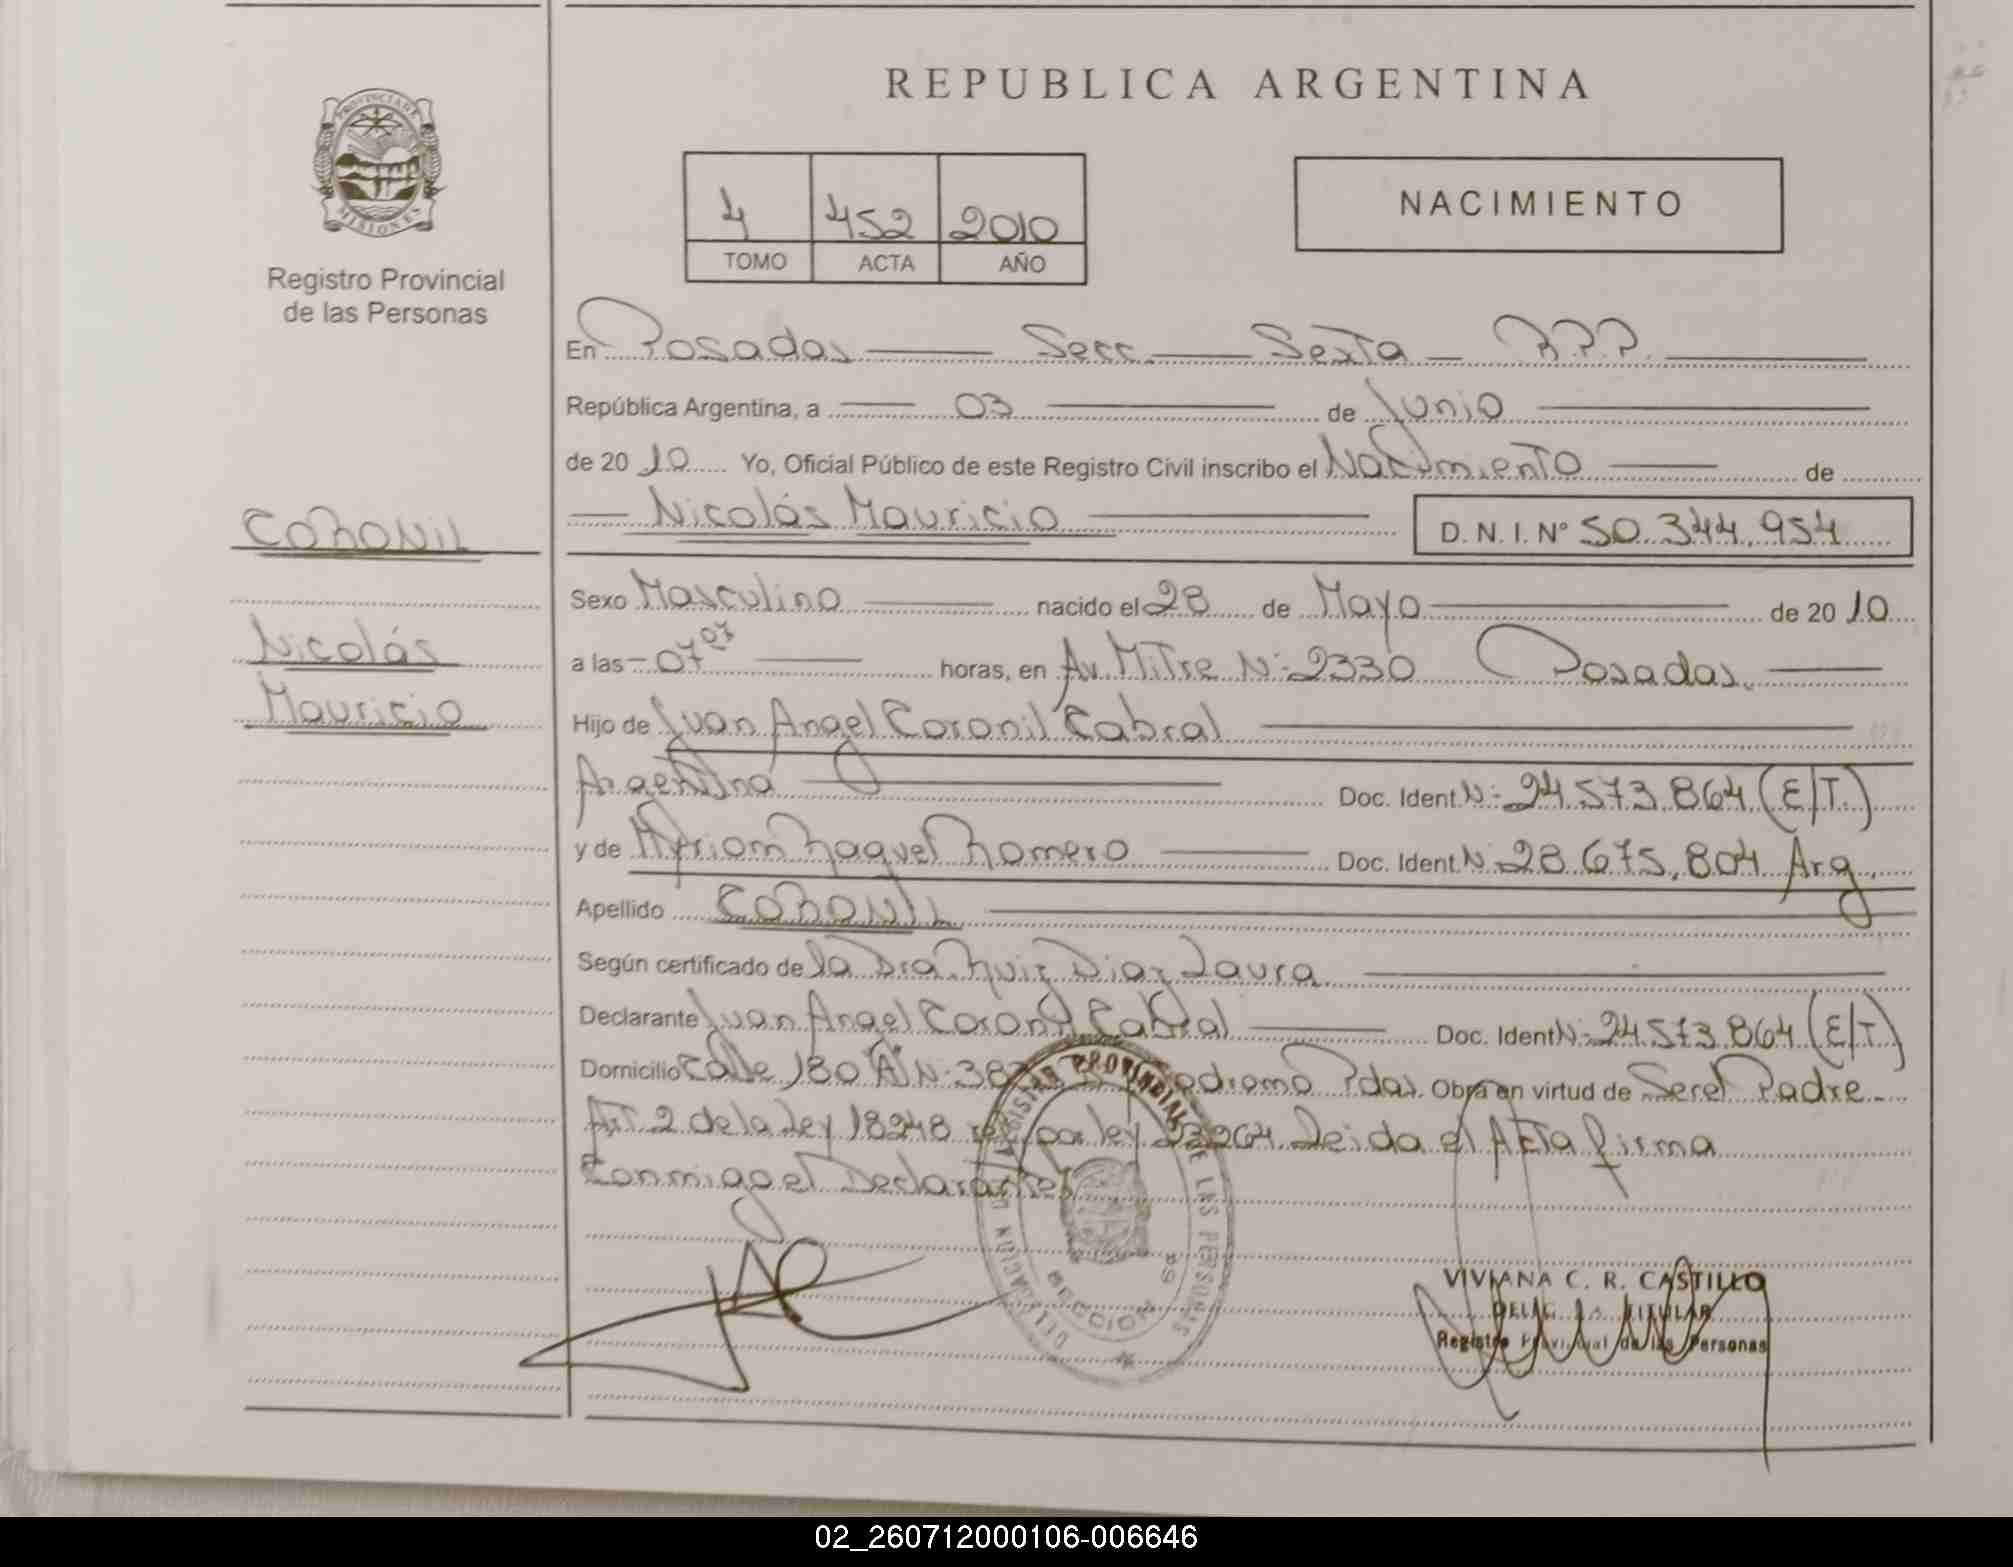 REPUBLICA ARGENTINA
PROVINCIA DE
MISIONES
Registro Provincial
de las Personas
4 452 2010
TOMO ACTA AÑO
NACIMIENTO
En Posadas Secc. Sexta
República Argentina, a 03 de Junio
de 20 10 Yo, Oficial Público de este Registro Civil inscribo el Nacimiento de
Nicolás Mauricio D. N. I. Nº 50.344.954
CORONIL
Nicolás
Mauricio
Sexo Masculino nacido el 28 de Mayo de 20 10
a las 07 07 horas, en Av. Mitre Nº 2330 Posadas.
Hijo de Juan Angel Coronil Cabral
Argentina Doc. Ident. Nº 24.573.864 (E/T.)
y de Myriam Raquel Romero Doc. Ident. Nº 28.675.804 Arg.
Apellido CORONIL
Según certificado de la Dra. Ruiz Diaz Laura
Declarante Juan Angel Coronil Cabral Doc. Ident Nº 24.573.864 (E/T)
Domicilio Calle 180 A Nº Pdas. Obra en virtud de Ser el Padre
Art. 2 de la Ley 18248 por ley Leida el Acta firma
Conmigo el Declarante
DELEGACION REGISTRO PROVINCIAL DE LAS PERSONAS
SECCION
VIVIANA C. R. CASTILLO
TITULAR
Registro Provincial de las Personas
02_260712000106-006646